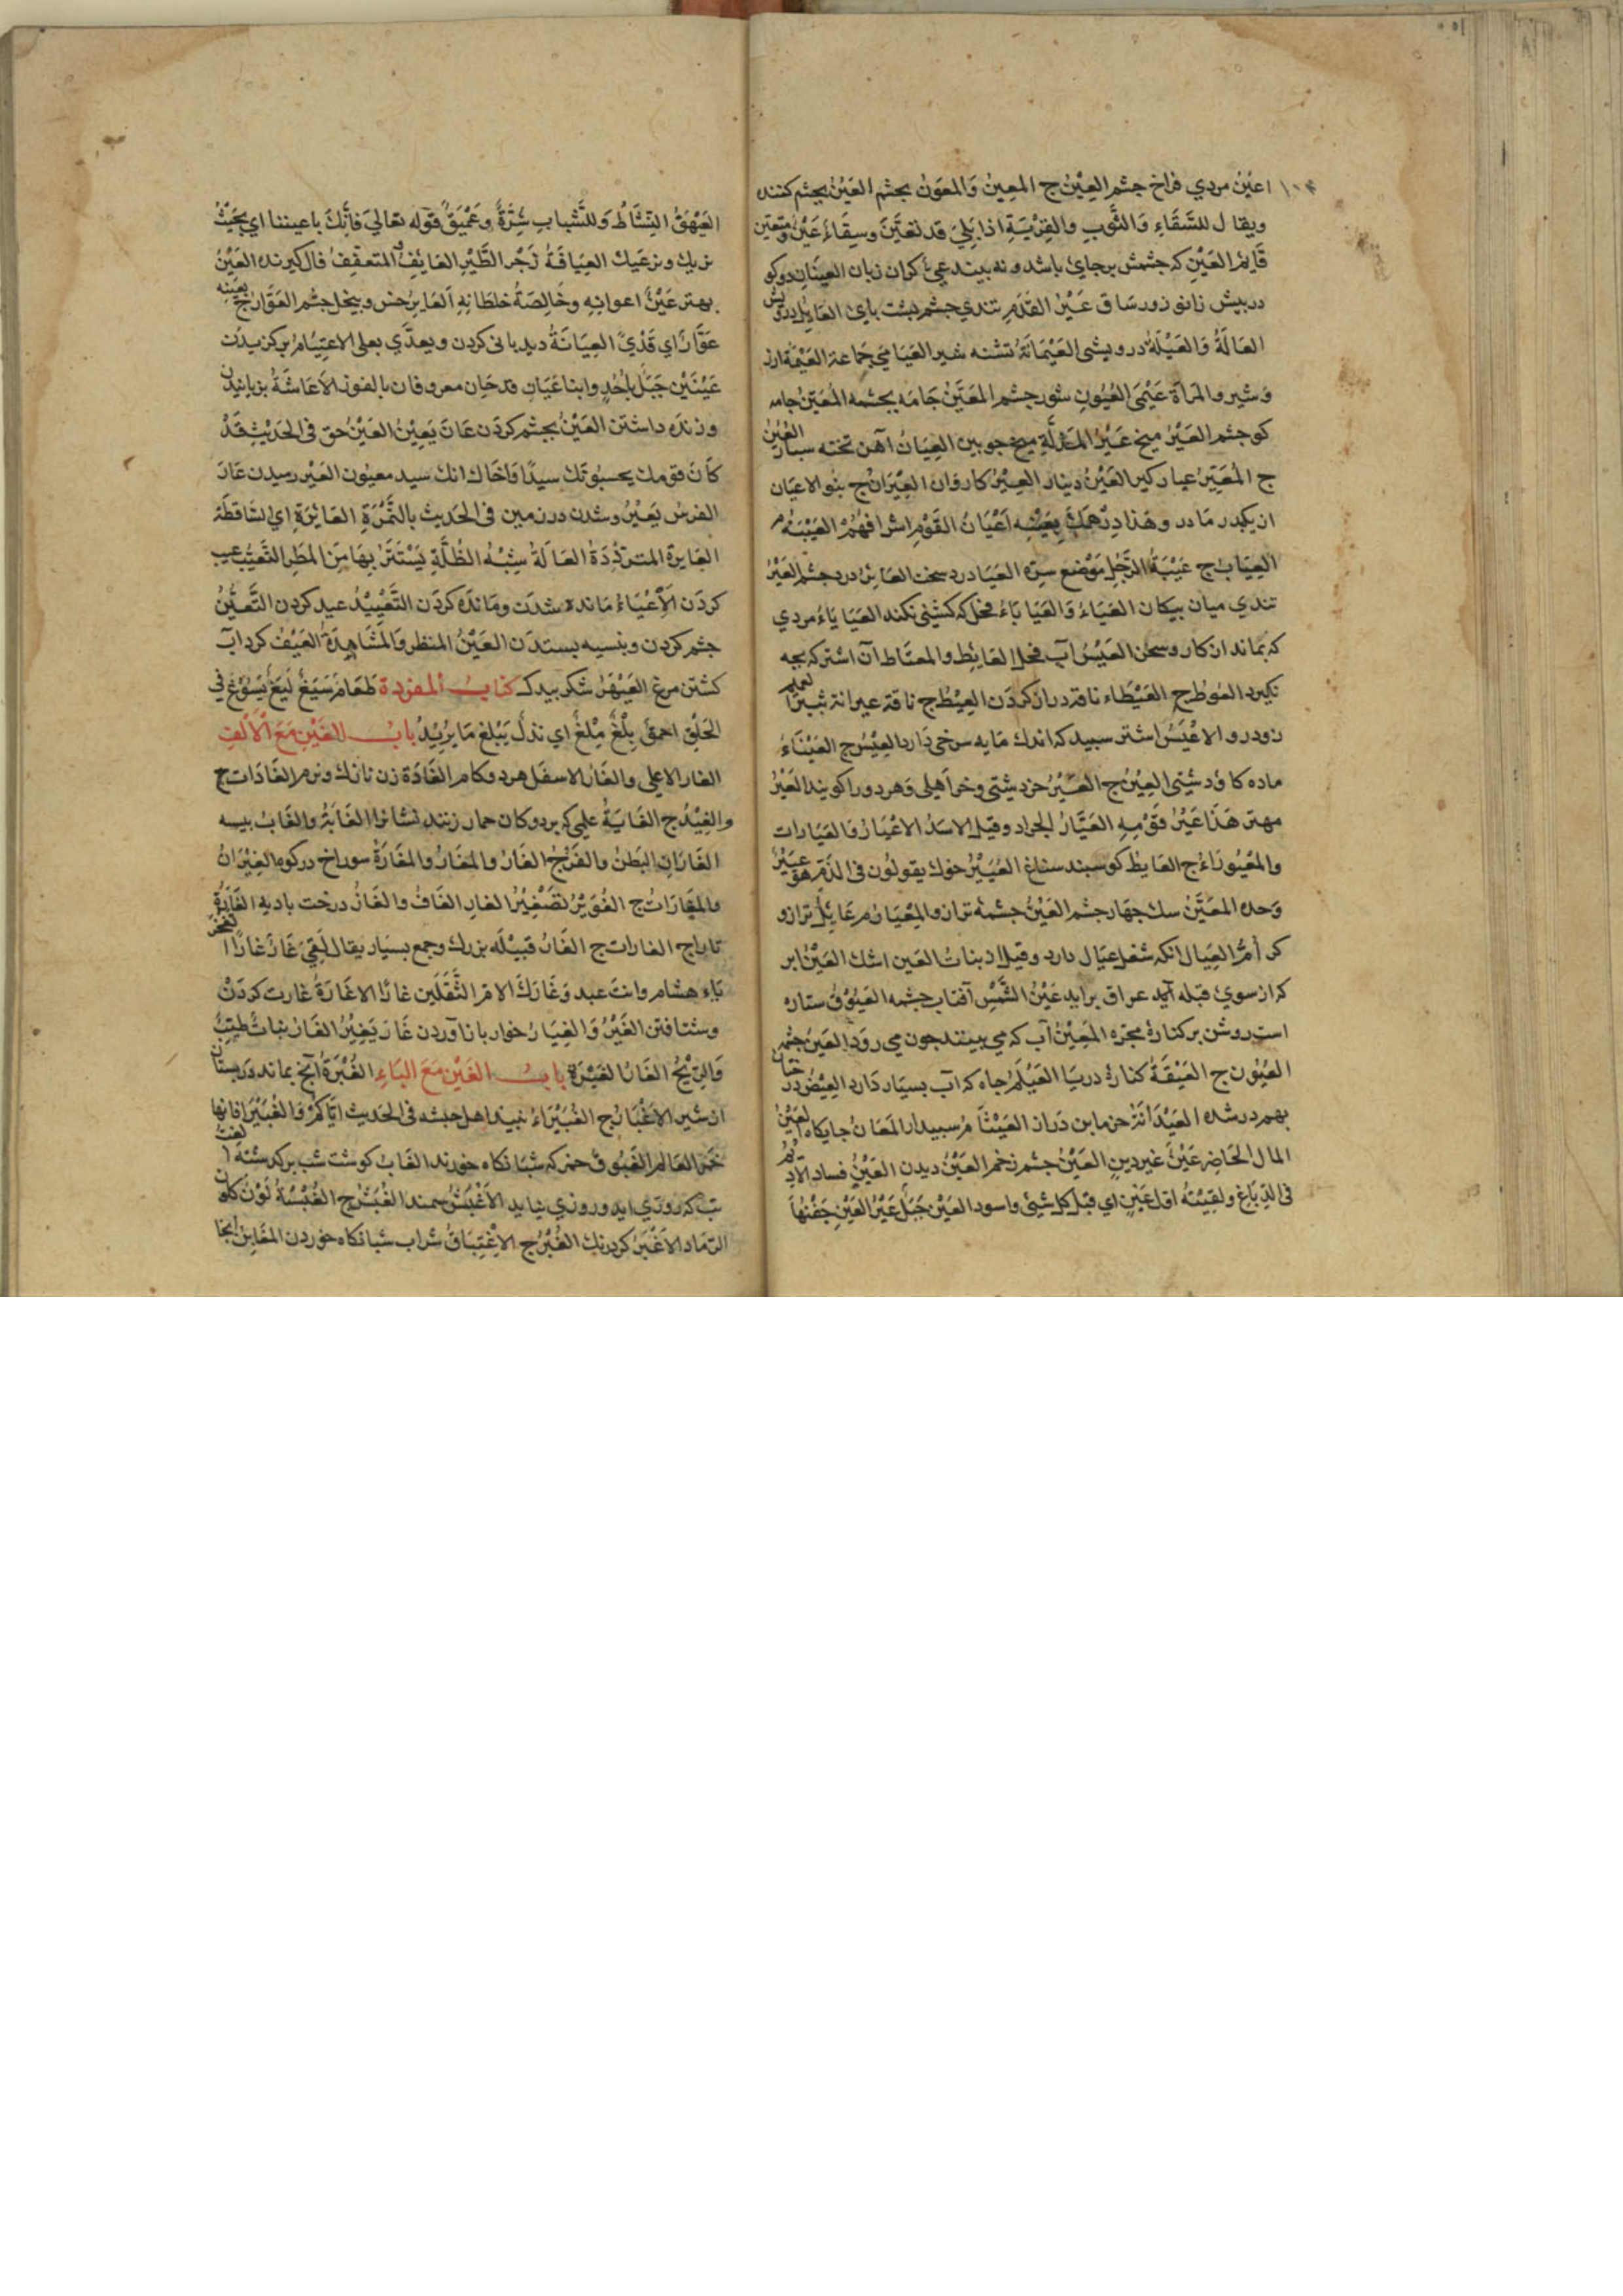 اعین مردي فراخ جشم العِیْنُ ج المعین وَالمعیون بجشم العَیْنُ بجشم کننده
ویقال للسَّقَاءِ وَالثَّوبِ والقِرْبَةِ اذا بَلِيَ قد تعیَّنَ وسِقَاءٌ عَیْنٌ ومتعین
قَایمُ العَیْنِ که جشمش برجاي باشد و نه بیند عيّ کران زبان العینَانِ دو کو
دربیش زانو زور سَاق عَیْرُ القدَمِ تندي جشم بشت باي العَایلُ درویش
العَالَةُ وَالعَیْلَةُ درویشی العَیْمَانَةُ تشنه شیر العَیَامَي جَماعة العَیْمَة ارز
وشیر والمرأة عَیْمَی العُیُونِ شور جشم المعَیَّن جَامَه بجشمه المُعَیَّنُ جامه
کو جشم العَیْرُ میخ عَیْرُ میخ جوبین العِیَانُ آهن تخته العُیُنُ
ج المُعَیِّرُ عیار کیر العَیْنُ دینار العِیْرُ کاروان العِیْرَانُ ج بنو الاعیان
از یکبدر مَادر وهَذا دِرْهَمُكَ بِعَیْنِه اَعْیَانُ القَوْمِ اشرافهُمْ العَیْبَةُ م
العِیَابُ ج عَیْبَةُ الرَّجُلِ مَوْضع سِرِّه العَیَا درد سخت العَایرُ درد جشم العَیْرُ
تندي میان بیکان العَیَاءُ وَالعَیَایَاءُ فحل که کشنی نکند العَیَایَاءُ مردي
که بماند از کار و سخن العَیْسُ آب فحل العَایِطُ والمعتَاط آن اشتر که بجه
نکیرد العُوطُ ج العَیْطَاء ناقه دراز کردَن العِیْطُ ج ناقة عیرانة
زودرو الاعْیَسُ اشتر سبید که اندك مَایه سرخی دَارد العِیْسُ ج العَیْنَاءُ
ماده کاو دشتی العِیْنُ ج العَیْرُ خر دشتی وخر اَهلی وَهر دو را کویند العَیْرُ
مهتر هَذَا عَیْرُ قَوْمِهِ العَیَّارُ الجراد وقیل الاسَدُ الاعْیَارُ وَالعیَارات
والمَعْیُورَاءُ ج العَایطُ کوسبند سناغ العُیَیْرُ خوك یقولُون فی الذَّمِ هو عُیَیْرُ
وَحده المعَیَّنُ سك جهار جشم العَیْنُ جشمهٔ ترازو المِعْیَارُ م عَایِلُ ترازو
کر أمُّ العِیَالِ انکه شغل عیال دارد وقیل بنَاتُ العَین اشك العَیْنُ ابر
که از سوي قبله آید عراق برآید عَیْنُ الشَّمْسِ آفتاب جشمه العَیُّوقُ ستاره
است روشن بر کنارهٔ مجرّه المَعِیْنُ آب که می بینند جون می روَد العَینُ جشمه
العُیُون ج العَیْقَةُ کنارهٔ دریَا العَیْلَمُ جاه که آب بسیار دَارد العِیْصُ درختان
بهم درشده العَیْدَانَةُ خرمابن دَراز العَیْثَامُ سبیدار المعَانُ جایکاه العَیْنُ
المال الحَاضِر عَیْنٌ غیر دینٍ العَیْنُ جشم زخم العَیْنُ دیدن العَیْنُ فساد الادِیْم
فی الدِّبَاغِ ولقِیْتهُ اوّل عَیْنٍ اي قبل کل شئ واسود العَیْن جَبَلٌ عَیْرُ العَیْنِ جَفْنُها
العَیْهَقُ النِّشَاطُ وَللشَّبابِ شِرَّةٌ وعَیْهَقٌ قوْله تعَالیَ فَانِّكَ باعیننا اي بحَیْثُ
نریك ونرعَیك العِیَافَةُ زَجْر الطَّیْرِ العَایِفُ المتعیّفُ فال کیرنده العَیْنُ
بهتر عَیْنٌ اعوانِه وخَالِصَةُ خلطانه اَلعَایرُ خس وبیخال جشم العَوَّارُ ج بِعَیْنِه
عَوَّارٌ اي قَذْيً العِیَانَةُ دیدبانی کردن ویعدّي بعلی الاعتیَامُ برکزیدَن
عَیْنَیْنِ جَبَلٌ بِاُحُدٍ وابنا عَیَانِ قدحَان معروفان بالفوز الاعَاشَةُ بزیانیدن
وزنده داشتن العَیْنُ بجشم کردَن عَانَ یَعِیْنُ العَیْنُ حق فی الحَدیْثِ قَدْ
کَانَ قومك یحسبُونَكَ سیدًا وَاخَالُ انك سید معیُون العَیْر رمیدن عَارَ
الفرسُ یَعِیْرُ وشدن در زمین فی الحَدیث بالتَّمْرَةِ العَائِرَةِ اي السَّاقطَة
العَایرَة المتردِّدَةُ العَالَةُ شِبْهُ الظُّلَّةِ یَسْتَتِرُ بِهَا مِنَ المَطَرِ التَّعَیُّبُ عیب
کردَن الاَعْیَاءُ مَانده شدَن ومَاندَه کردَن التَّعْیِیْدُ عید کردن التَّعَیُّنُ
جشم کردن وبنسیه بستدَن العَیْنُ المنظر وَالمشَاهدَةُ العَیْفُ کرد آب
کشتن مرغ العَیْهَرُ کتاب المفردة طعَامٌ سَیِّغٌ لَیِّغٌ یَسُوْغُ فی
الحَلْقِ احمق بِلْغٌ مِلْغٌ اي نذلٌ یَبْلغ مَا یرُیْدُ بابُ الغَیْنِ مَعَ الاَلِفِ
الغار الاعلی والغَارُ الاسفل هر دو کام الغَادَة زن نازك ونرم الغَادَات ج
والغِیْدُ ج الغَایَةُ علمی که بر دوکان خمار زنند نشانرا الغَابَةُ والغَابُ بیسه
الغَارَانِ البَطْنُ والفَرْجُ الغَارُ والمَغَارُ والمغَارَةُ سوراخ در کوه الغِیْرَانُ
والمَغَارَاتُ ج الغُوَیْرُ تصْغِیْرُ الغار الغَافُ والغَارُ درخت بادیه الغَارَةُ
تاراج الغارات ج الغَارُ قبِیْله بزرك وجمع بسیار یقال لَقِيَ غَارٌ غَارًا
بَاء هشام وابنَ عبد وغَارَكَ الامر الثَّقَلَین غارًا الاغَارَةُ غارت کردَنْ
وشتافتن الغَیْرُ وَالغِیَارُ خواربار آوردن غَارَ یَغِیْرُ الغَارُ نبَاتٌ طَیِّبُ
وَالرِّیْحُ الغَارُ الغَیْرَةُ بابُ الغَیْنِ مَعَ البَاءِ الغُبْرَةُ آنج بماند در بستان
از شیر الاغْبَارُ ج الغُبَیْرَاءُ نبیذ اهل حبشه فی الحَدیث ایَّاکُمْ وَالغُبَیْرَا فانها
خَمْرُ العَالم الغَبُوق خمر که شبَانکاه خورند الغَابُ کوشت شب برکدشته
تب که روزي آید و روزي نیاید الاَغْبَشُ سمند الغُبْشُ ج الغُبْسَةُ لَوْنٌ کلون
الرَّمَاد الاَغْبَرُ کردرنك الغُبْرُ ج الاِغْتِبَاقُ شراب شبَانکاه خوردن المَغَابِنُ